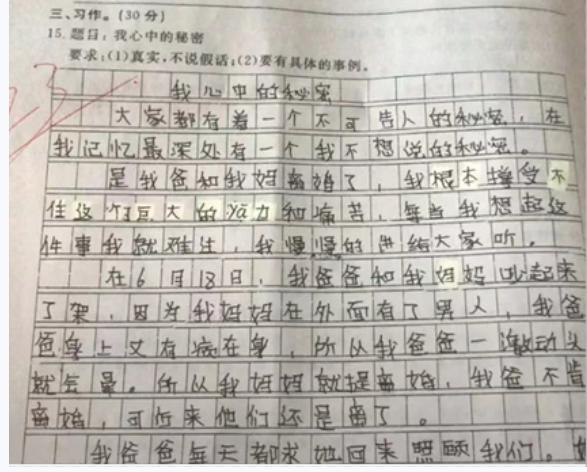 三、习作。(30分)
15. 题目:我心中的秘密
要求:(1)真实,不说假话;(2)要有具体的事例。
我心中的秘密
大家都有着一个不可告人的秘密,在
我记忆最深处有一个我不想说的秘密。
是我爸和我妈离婚了,我根本接受不
住这个巨大的yā力和痛苦,每当我想起这
件事我就难过,我慢慢的讲给大家听。
在6月18日,我爸爸和我妈妈吵起来
了架,因为我妈妈在外面有了男人,我爸
爸身上又有病在身,所以我爸爸一激动头
就会晕。所以我妈妈就提离婚,我爸不肯
离婚,可后来他们还是离了。
我爸爸每天都求她回来照顾我们。